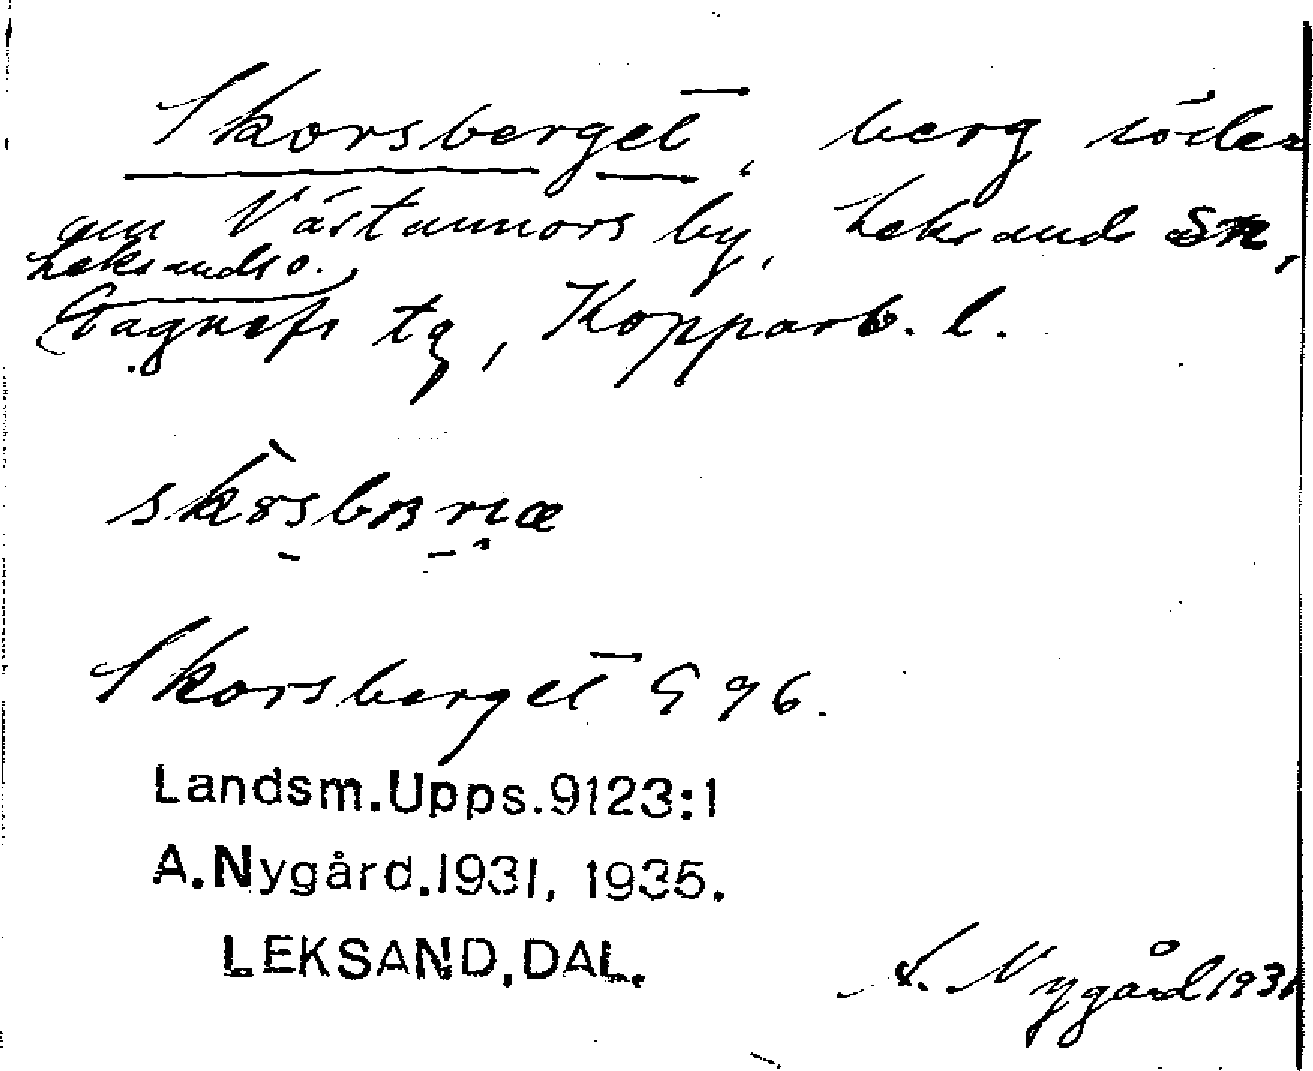 Skorsberget, berg söder
om Västannors by, Leksands sn,
Leksands o.
Gagnefs tg, Kopparb. l.
Skorsberget G 96.
Landsm.Upps.9123:1
A.Nygård.1931, 1935.
LEKSAND, DAL.
A. Nygård 1931